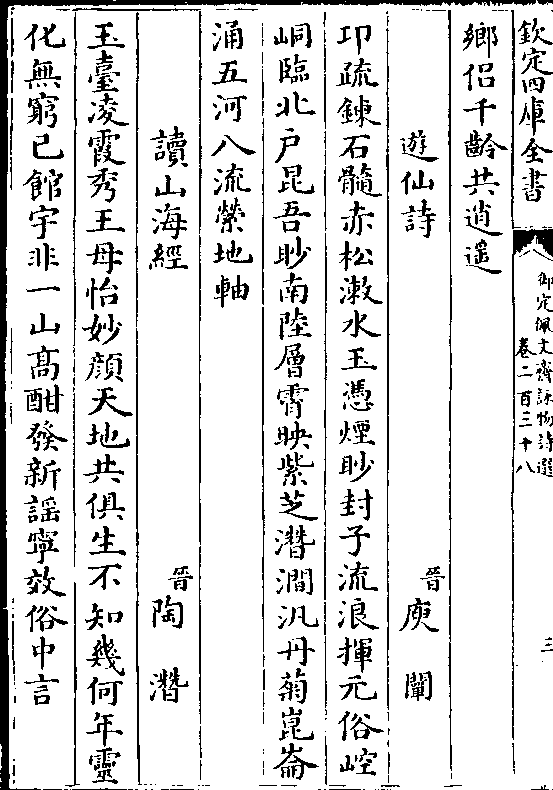 欽定四庫全書
御定佩文齋詠物詩選
卷二百三十八
三
鄉侶千齡共逍遙
遊仙詩
晉庾闡
邛疏鍊石髓赤松漱水玉憑煙眇封子流浪揮元俗崆
峒臨北戶昆吾眇南陸層霄映紫芝潛澗汎丹菊崑崙
涌五河八流縈地軸
讀山海經
晉陶潛
玉臺凌霞秀王母怡妙顔天地共俱生不知幾何年靈
化無窮已館宇非一山高酣發新謡寧效俗中言